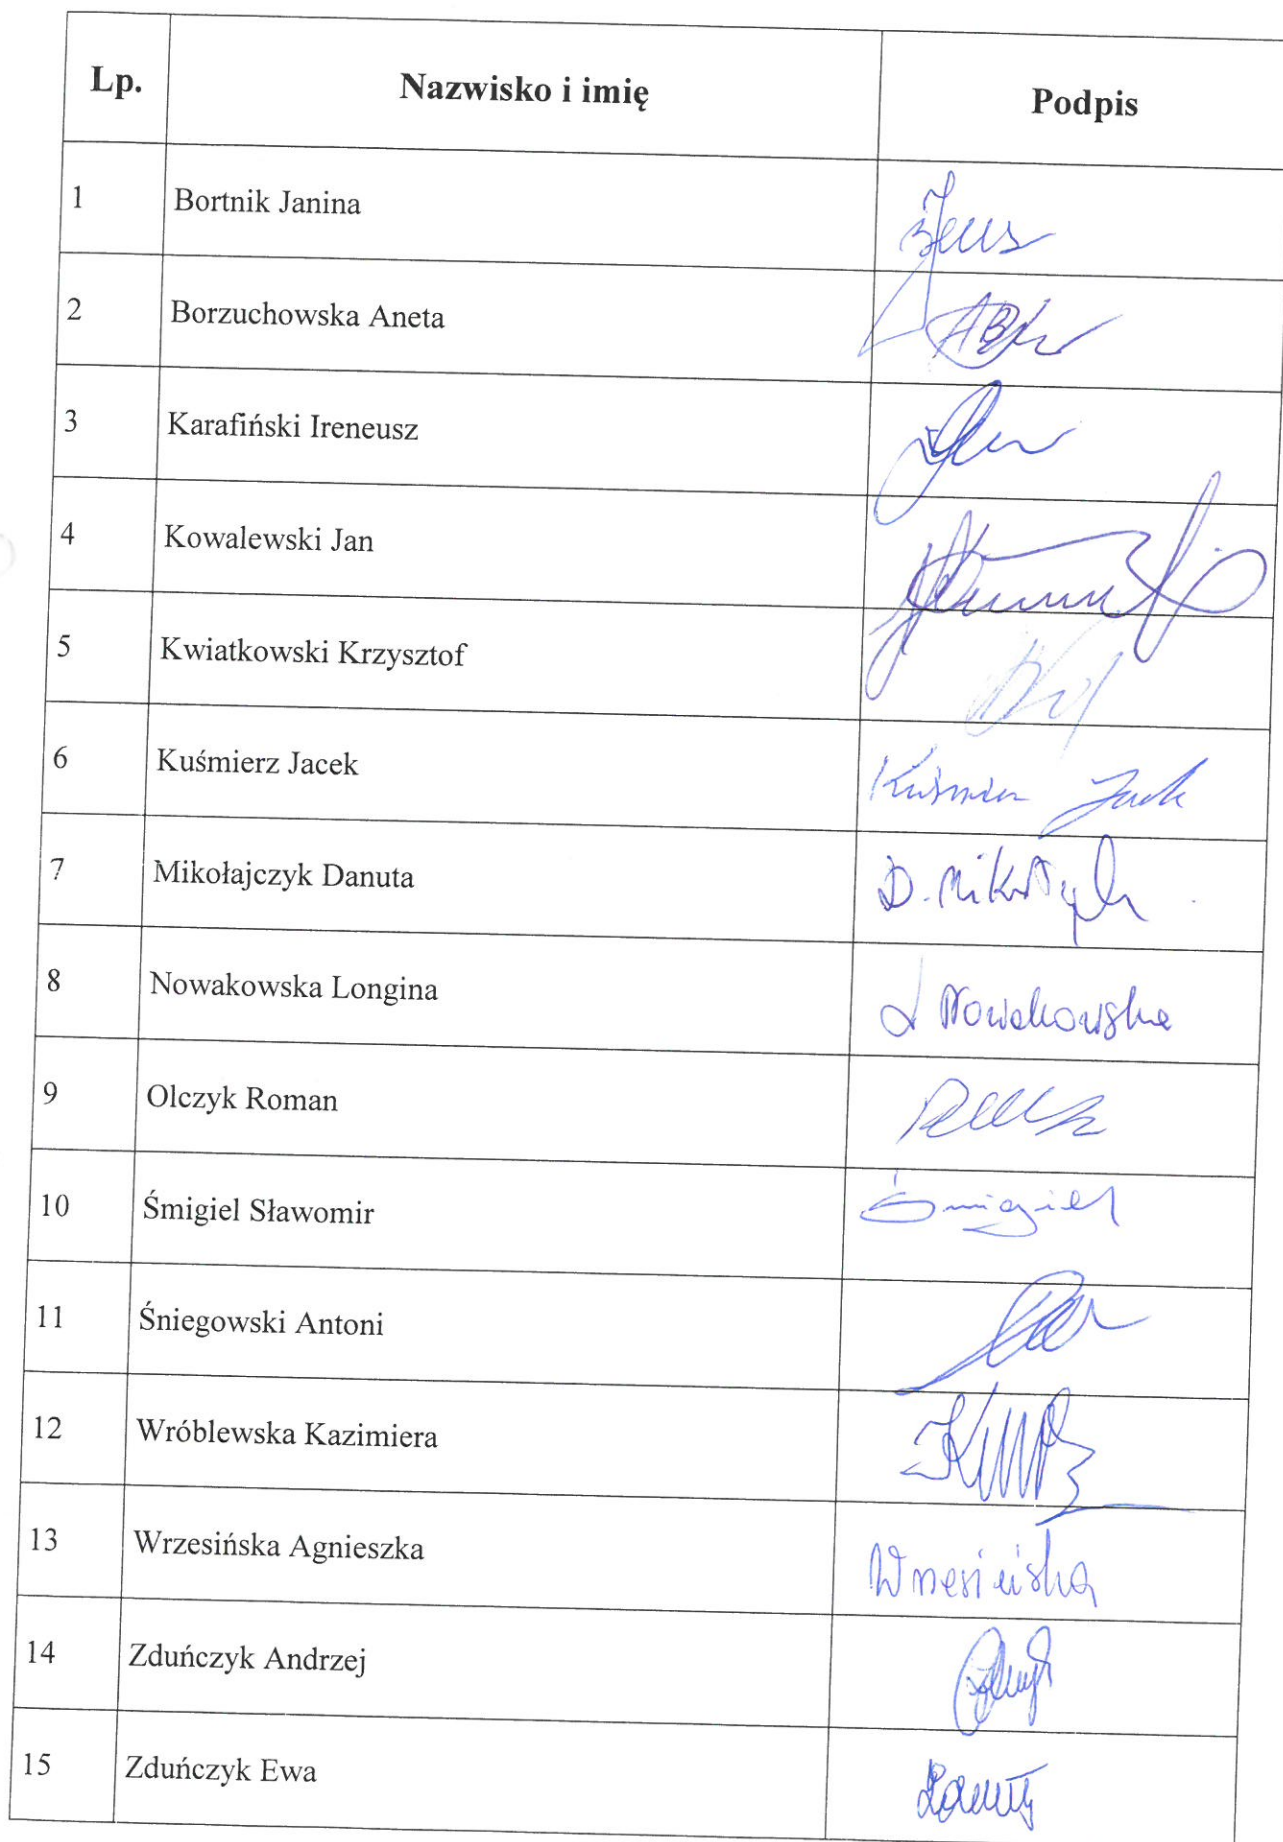 Lp. Nazwisko i imię Podpis
1 Bortnik Janina
2 Borzuchowska Aneta
3 Karafiński Ireneusz
4 Kowalewski Jan
5 Kwiatkowski Krzysztof
6 Kuśmierz Jacek Kuśmierz Jacek
7 Mikołajczyk Danuta D. Mikołajczyk
8 Nowakowska Longina L Nowakowska
9 Olczyk Roman
10 Śmigiel Sławomir Śmigiel
11 Śniegowski Antoni
12 Wróblewska Kazimiera
13 Wrzesińska Agnieszka Wrzesińska
14 Zduńczyk Andrzej
15 Zduńczyk Ewa